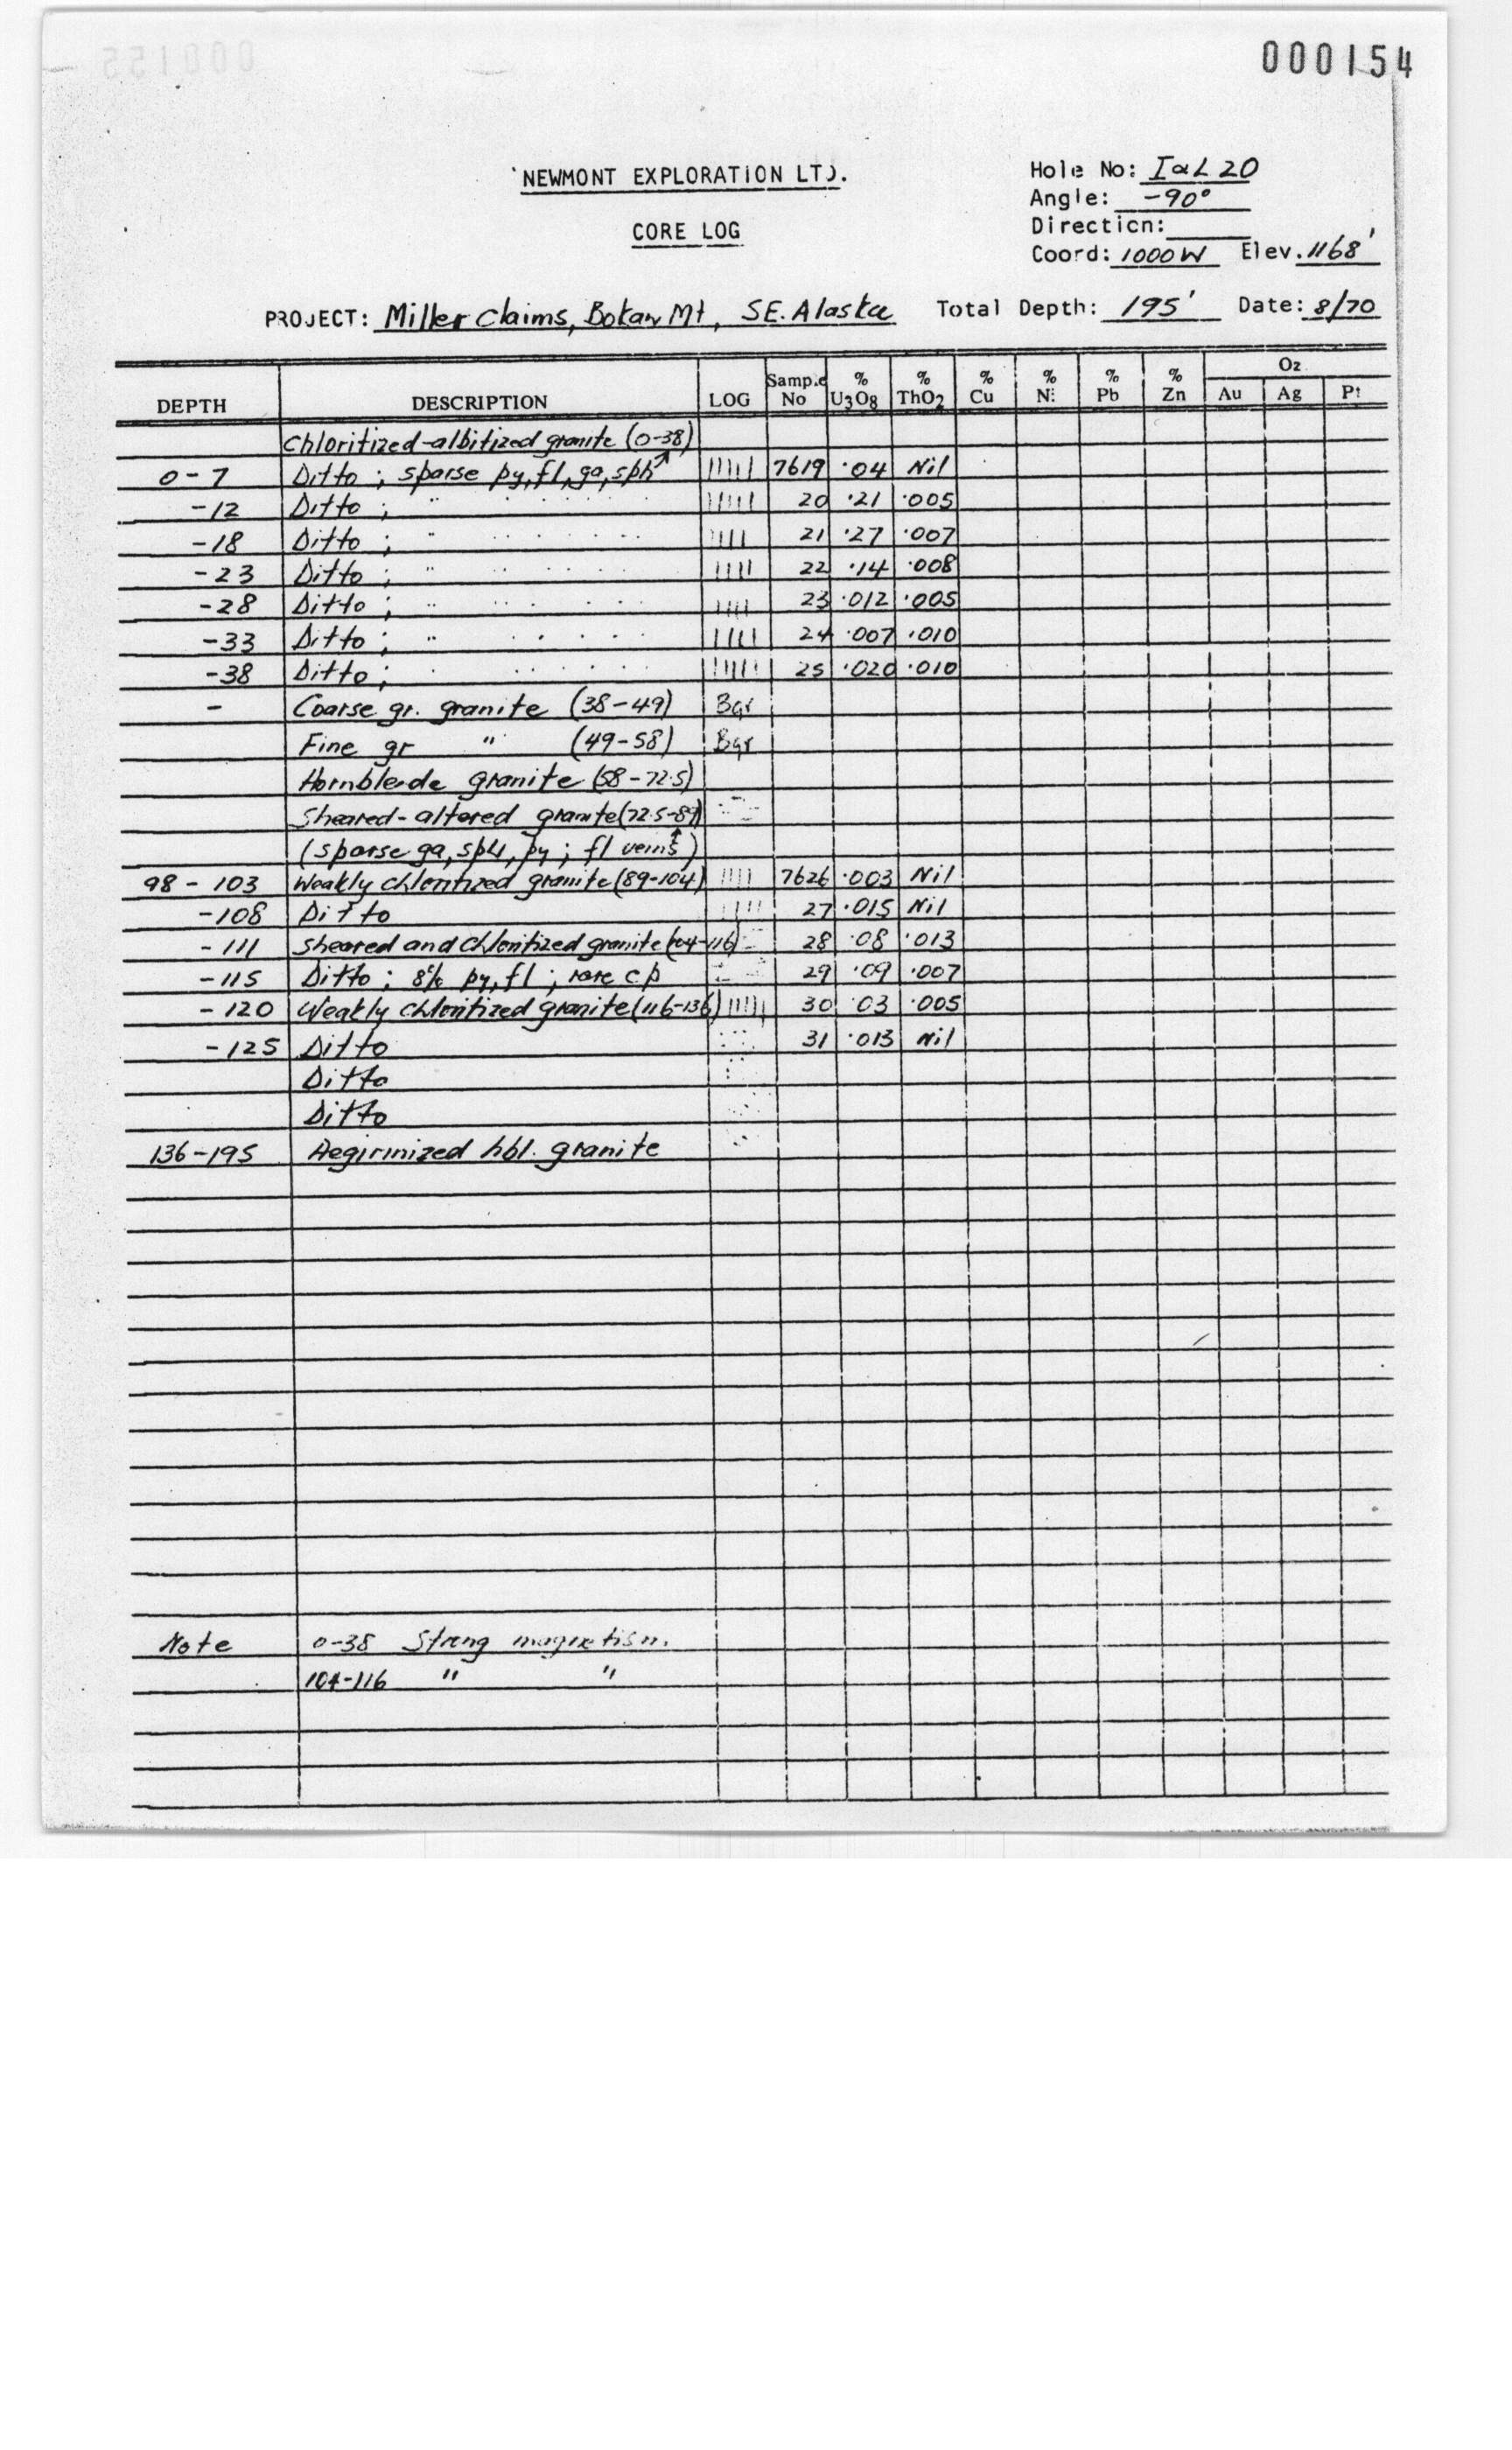 000154
NEWMONT EXPLORATION LTD.
CORE LOG
Hole No: I&L 20
Angle: -90°
Direction:
Coord: 1000W Elev. 1168'
PROJECT: Miller Claims, Bokan Mt, SE. Alaska Total Depth: 195' Date: 8/70
DEPTH DESCRIPTION LOG Sample No % U3O8 % ThO2 % Cu % Ni % Pb % Zn Oz Au Ag Pt
Chloritized-albitized granite (0-38)
0-7 Ditto; sparse py, fl, ga, sph 7619 .04 Nil
-12 Ditto; " 20 .21 .005
-18 Ditto; " 21 .27 .007
-23 Ditto; " 22 .14 .008
-28 Ditto; " 23 .012 .005
-33 Ditto; " 24 .007 .010
-38 Ditto; " 25 .020 .010
- Coarse gr. granite (38-49) Bgr
Fine gr " (49-58) Bgr
Hornblende granite (58-72.5)
Sheared-altered granite (72.5-89)
(sparse ga, sph, py; fl veins)
98-103 Weakly chloritized granite (89-104) 7626 .003 Nil
-108 Ditto 27 .015 Nil
-111 Sheared and chloritized granite (104-116) 28 .08 .013
-115 Ditto; 8% py, fl; rare cp 29 .09 .007
-120 Weakly chloritized granite (116-136) 30 .03 .005
-125 Ditto 31 .013 Nil
Ditto
Ditto
136-195 Aegirinized hbl. granite
Note 0-38 Strong magnetism.
104-116 " "